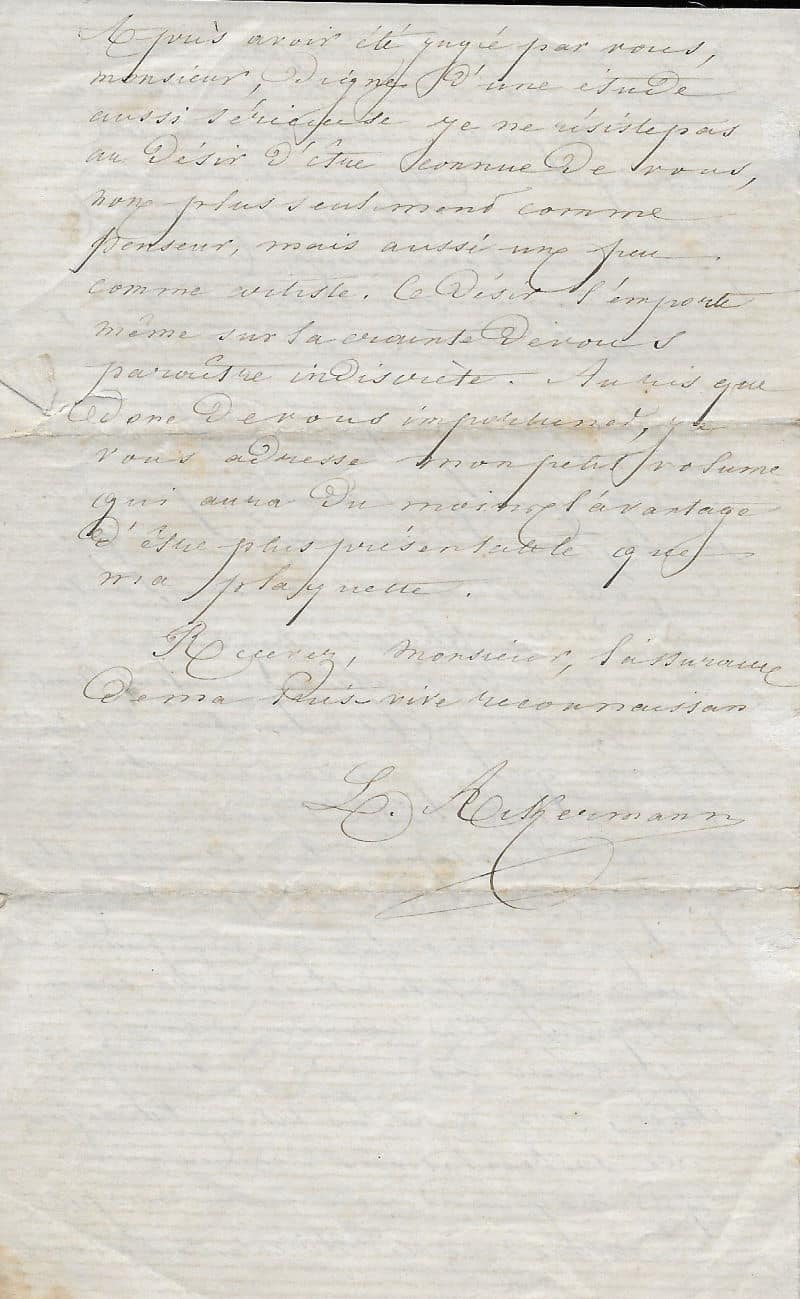 Après avoir été jugée par vous,
monsieur, digne d'une étude
aussi sérieuse je ne résiste pas
au désir d'être connue de vous,
non plus seulement comme
penseur, mais aussi un peu
comme artiste. Ce désir l'emporte
même sur la crainte de vous
paraître indiscrète. Au risque
donc de vous importuner, je
vous adresse mon petit volume
qui aura du moins l'avantage
d'être plus présentable que
ma plaquette.
Recevez, Monsieur, l'assurance
de ma très vive reconnaissan
L. Ackermann